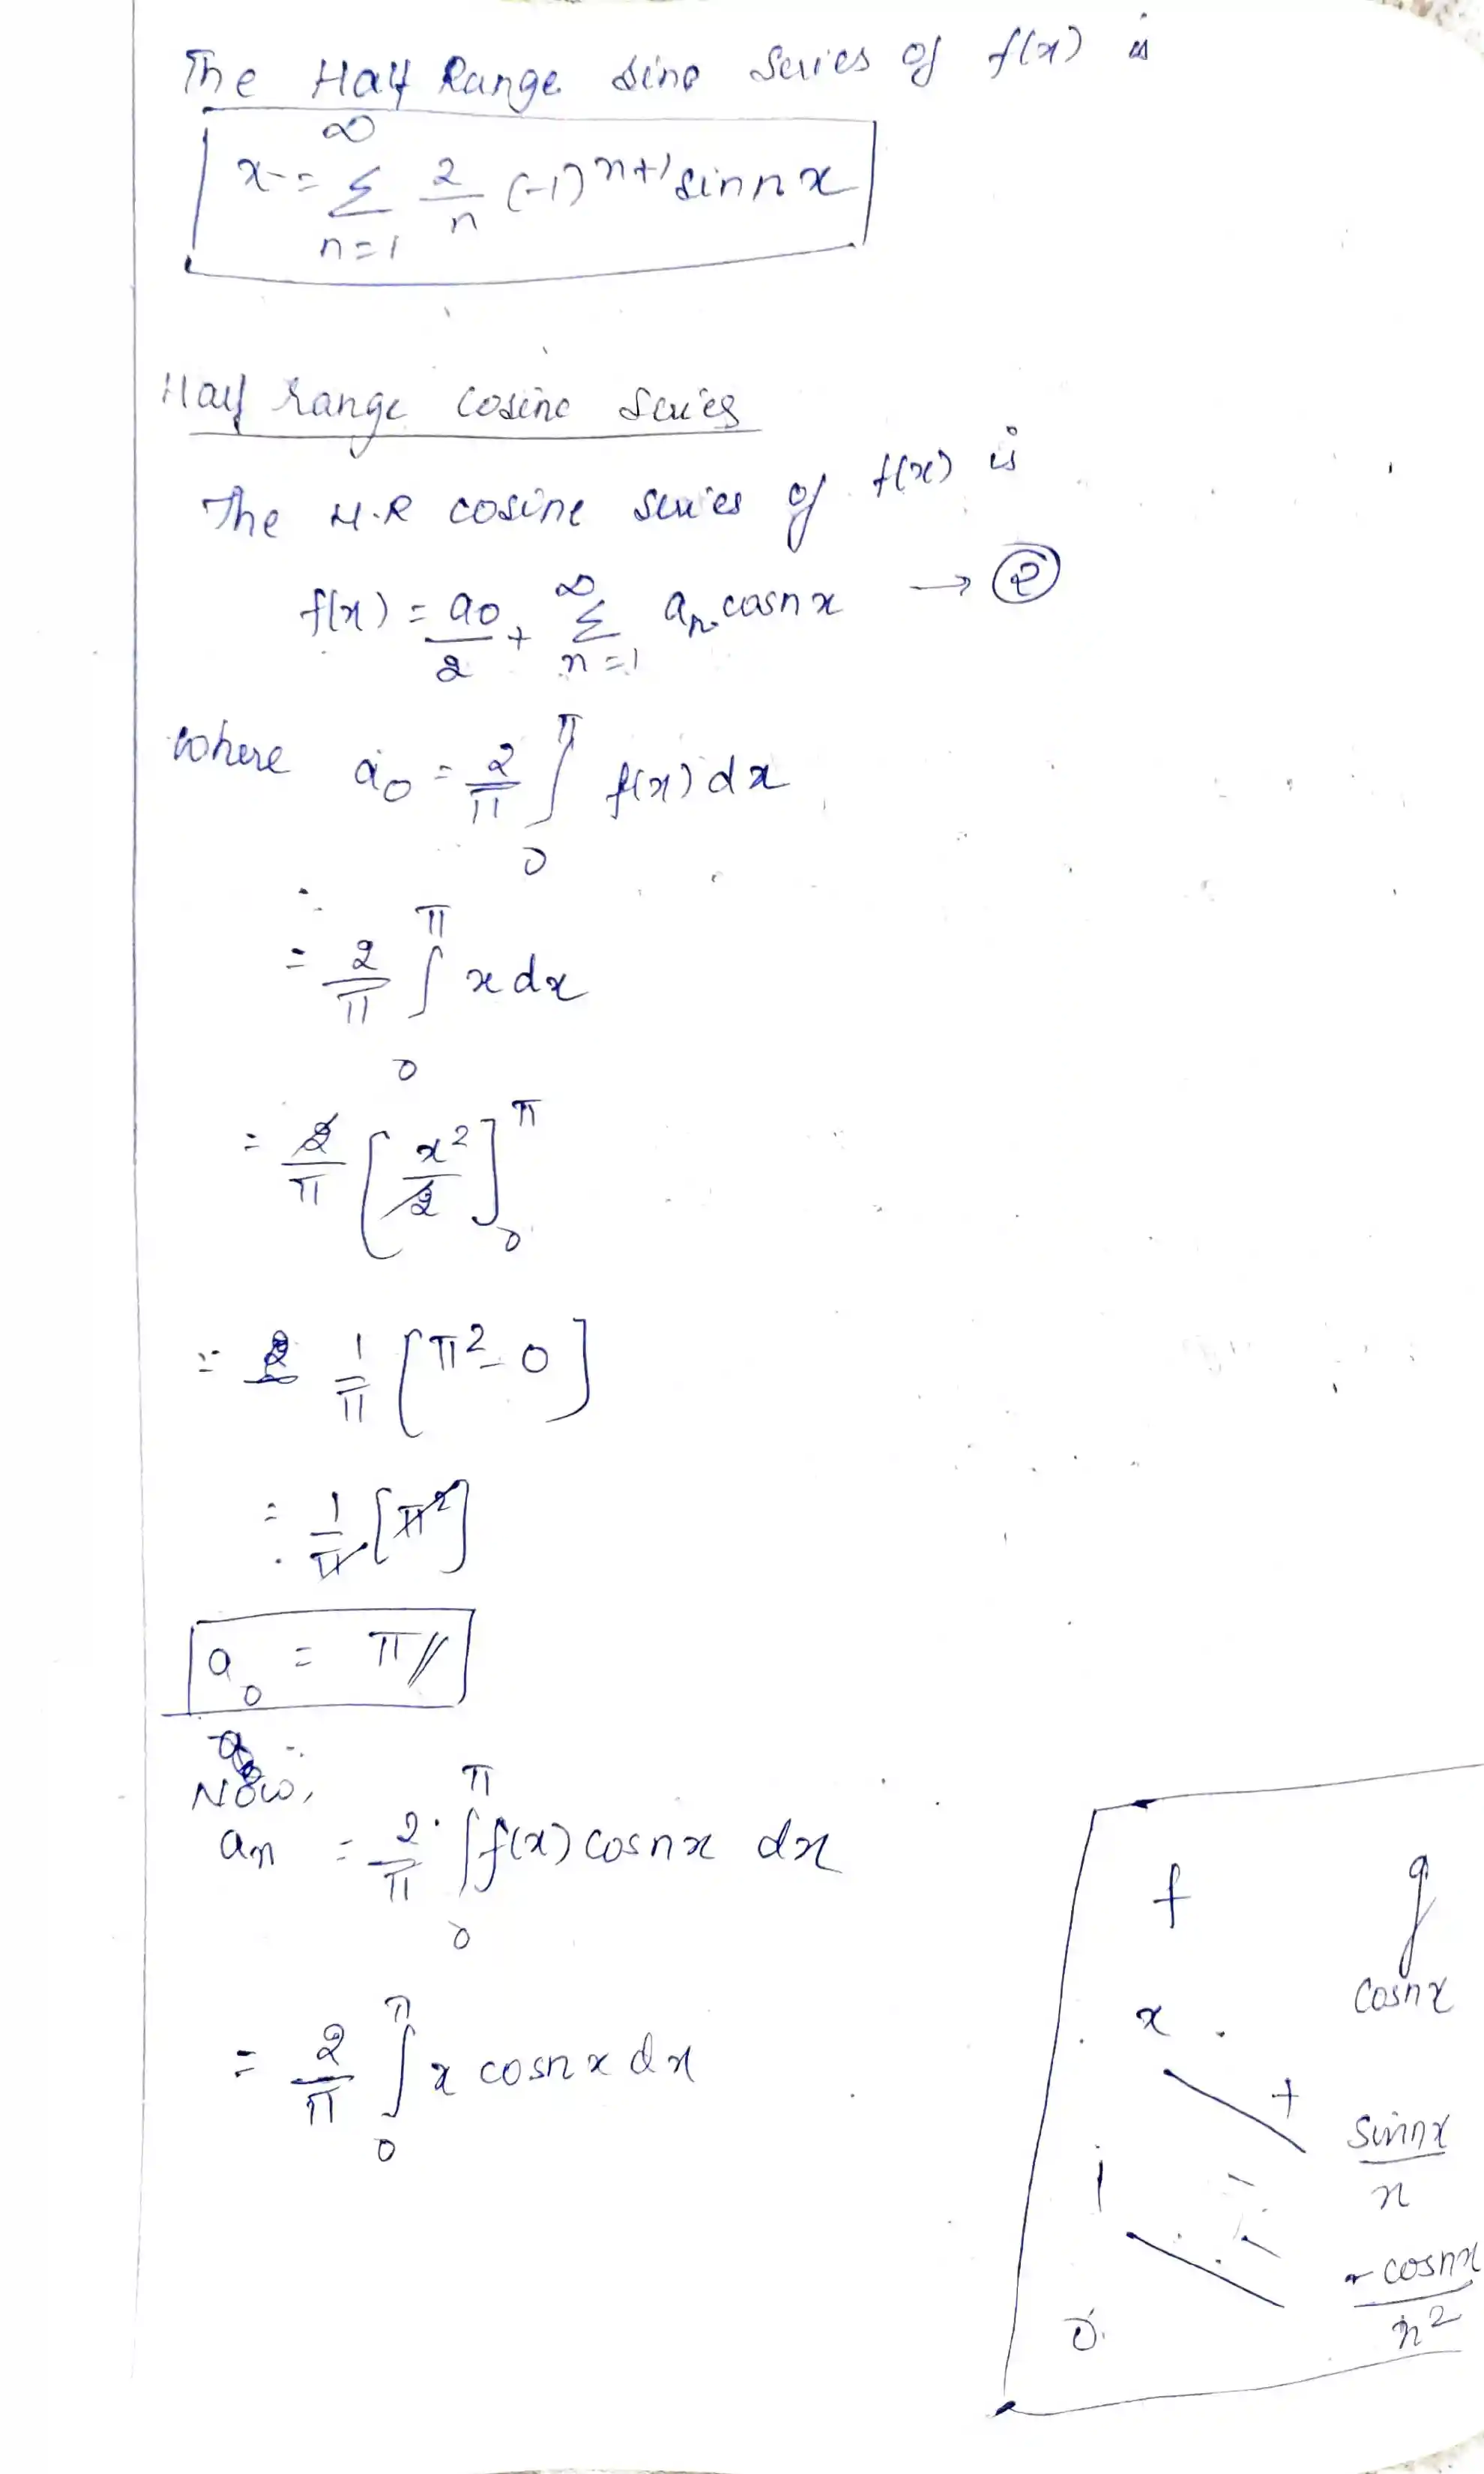 The Half Range sine Series of f(x) is
x = ∞ Σ n=1 2/n (-1)^n+1 sin nx
Half range cosine series
The H.R cosine series of f(x) is
f(x) = a0/2 + ∞ Σ n=1 an cosnx → ②
where a0 = 2/π ∫0^π f(x) dx
= 2/π ∫0^π x dx
= 2/π [x^2/2]0^π
= 1/π [π^2 - 0]
= 1/π [π^2]
a0 = π//
Now,
an = 2/π ∫0^π f(x) cosnx dx
= 2/π ∫0^π x cosnx dx
f g
x cosnx
+
1 sinnx/n
-
0 -cosnx/n^2